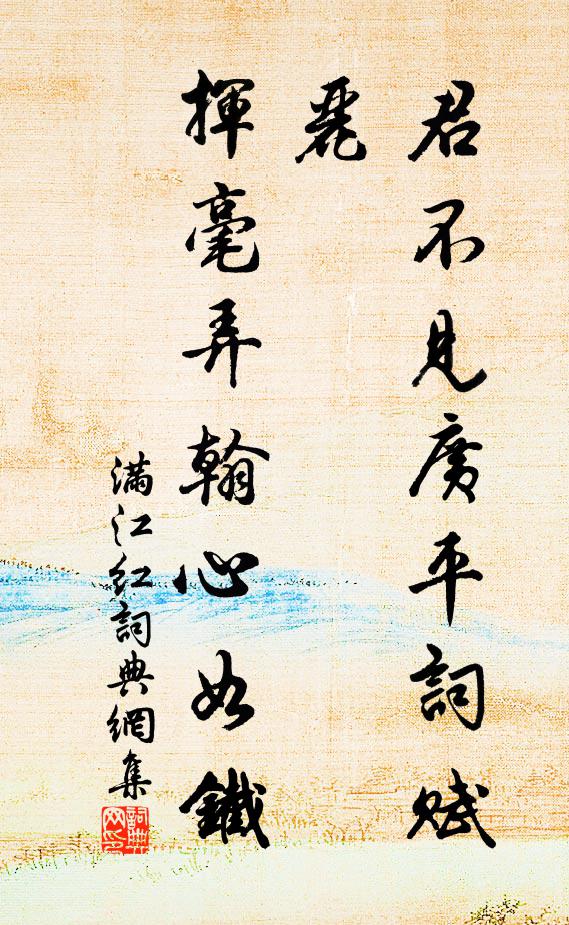 君不見廣平詞賦
麗
揮毫弄翰心如鐵
滿江紅詞典網集